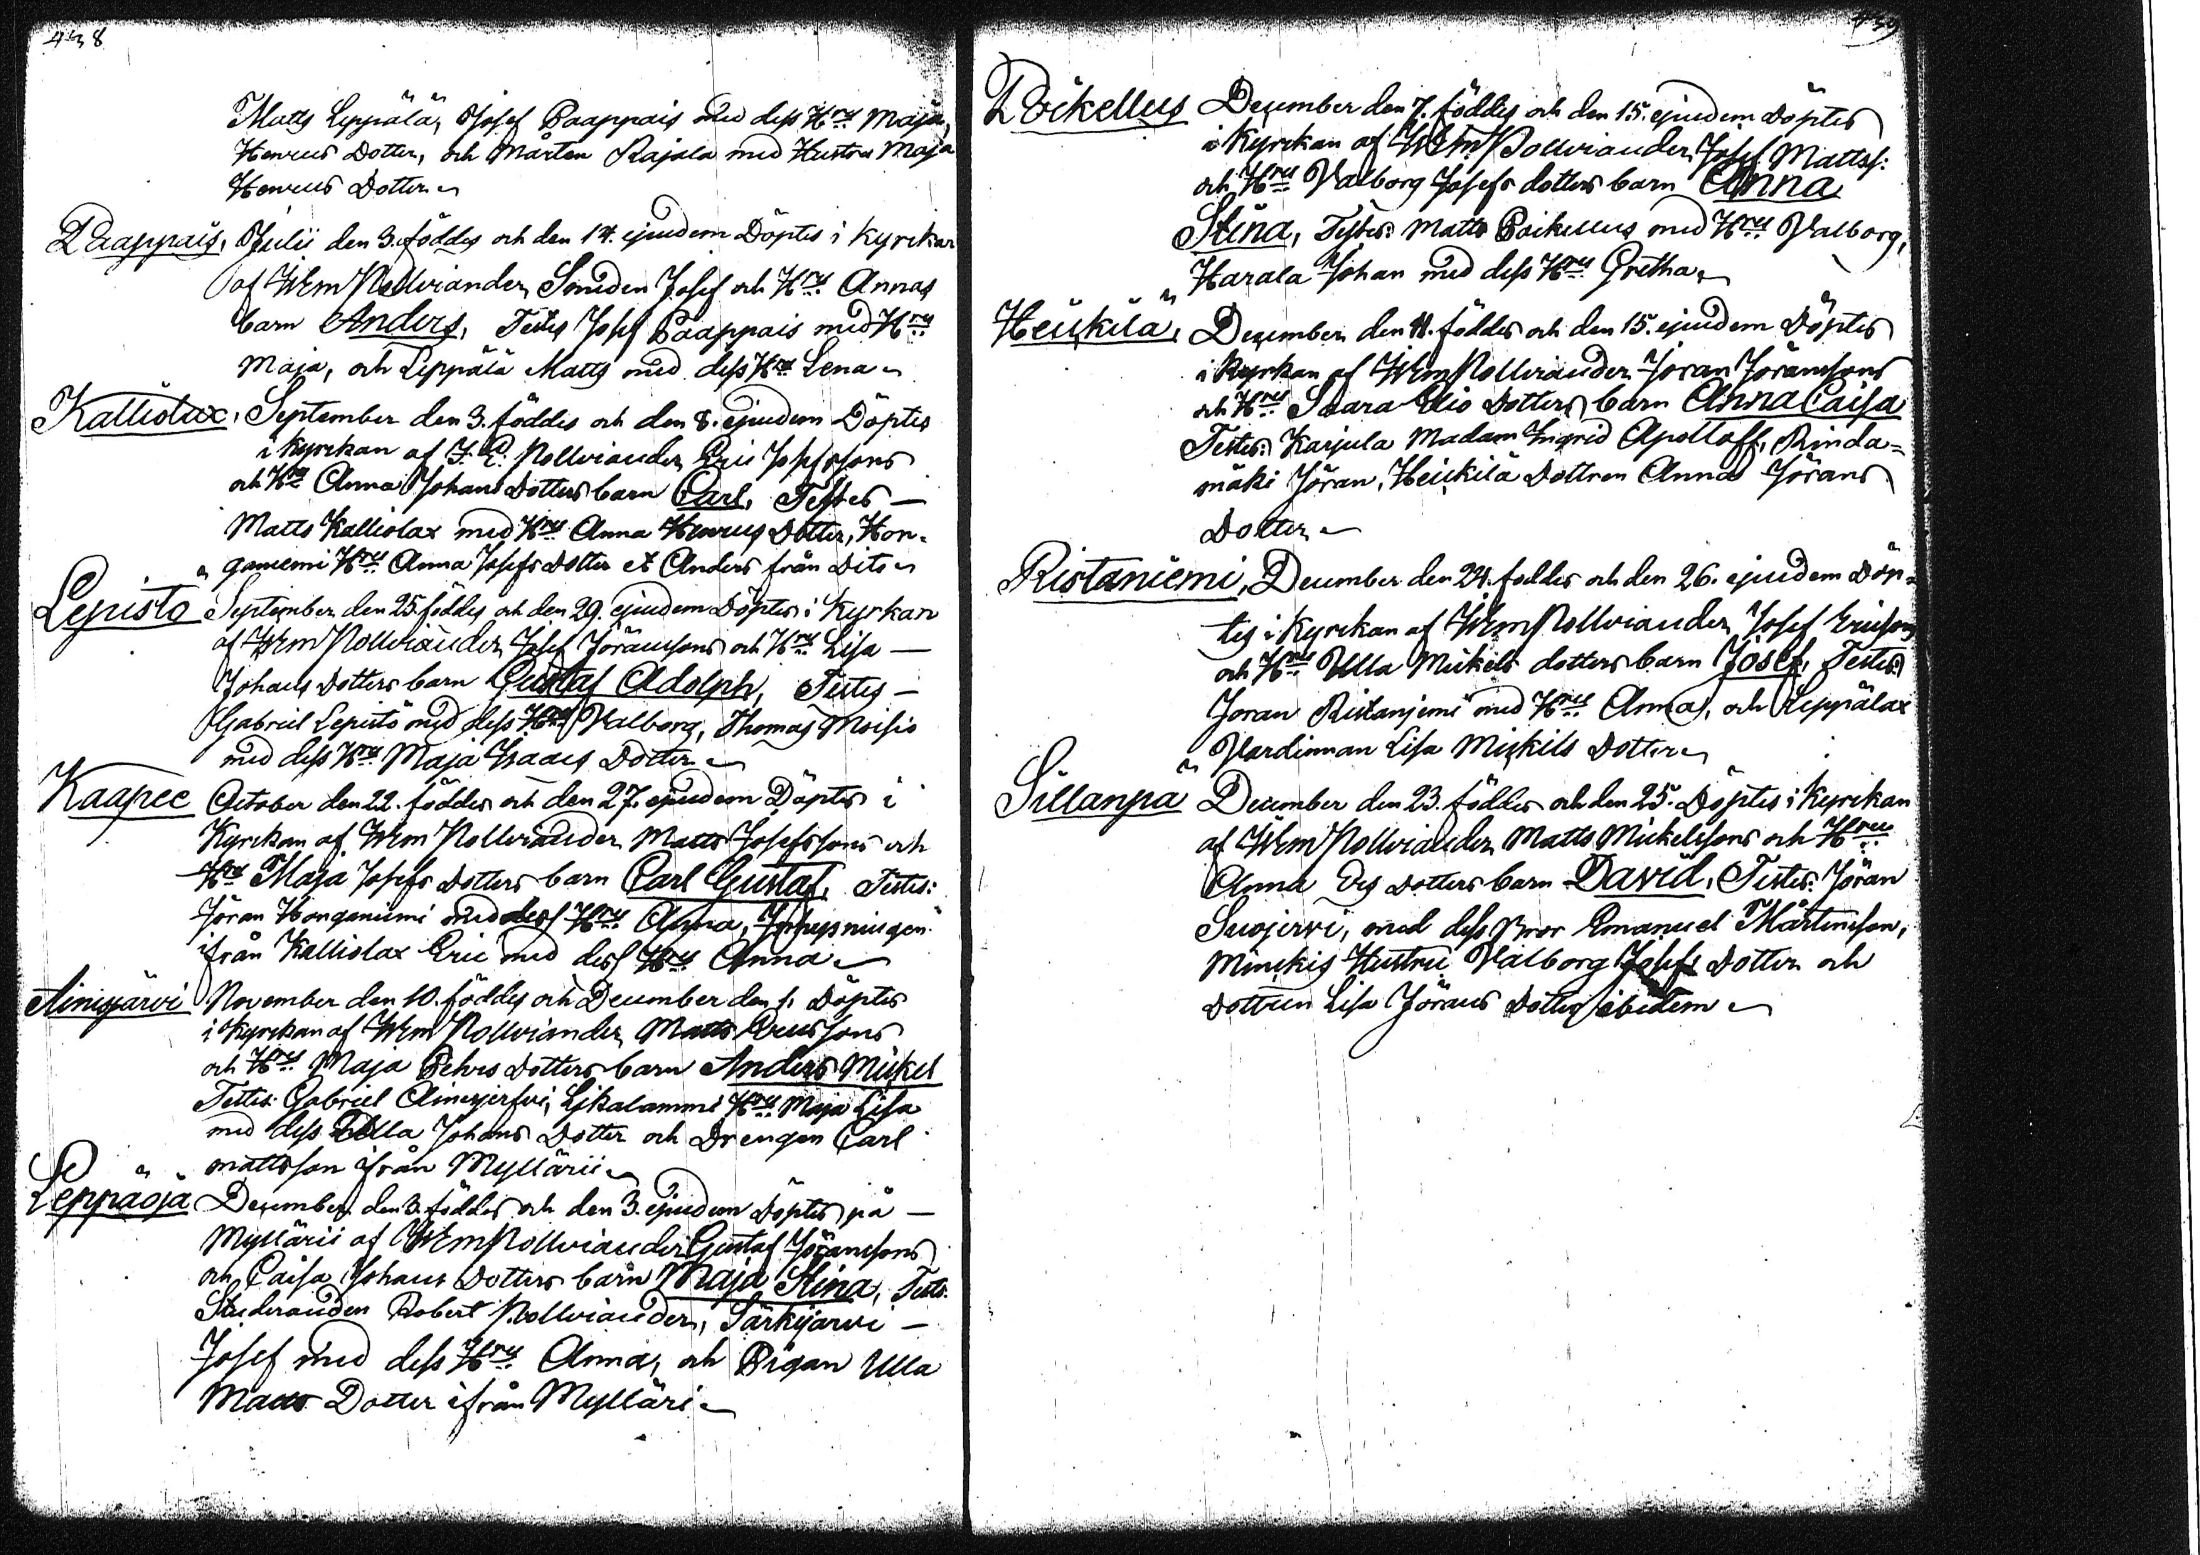 438
Matts Leppälä, Josef Paappais med dess Hru Maja
Henrics Dotter, och Mårten Rajala med Hustru Maja
Henrics Dotter
Paappais, Julii den 3. föddes och den 14. ejusdem Döptes i Kyrckan
af Wem Pollviander, Josef och Hrus Annas
barn Anders, Testes Josef Paappais med Hru
Maja, och Leppälä Matts med dess Hru Lena
Kalliolax, September den 3. föddes och den 8. ejusdem Döptes
i kyrckan af J. E. Pollviander, Eric Josefssons
och Hru Anna Johans Dotters barn Carl, Testes —
Matts Kalliolax med Hru Anna Henrics Dotter, Hon-
ganiemi Hru Anna Josefs Dotter et Anders från Dito
Lepistö September den 25. föddes och den 29. ejusdem Döptes i Kyrkan
af Wem Pollviander, Josef Jöranssons och Hru Lisa —
Johans Dotters barn Gustaf Adolph, Testes —
Gabriel Lepistö med dess Hru Valborg, Thomas Moisio
med dess Hru Maja Isaacs Dotter
Kaapee October den 22. föddes och den 27. ejusdem Döptes i
Kyrckan af Wem Pollviander Matts Josefssons och
Hru Maja Josefs Dotters barn Carl Gustaf, Testes:
Jöran Honganiemi med dess Hru Anna, Inhysningen
ifrån Kalliolax Eric med dess Hru Anna
Ainesjärvi November den 10. föddes och December den 1. Döptes
i kyrckan af Wem Pollviander, Matts Ericssons
och Hru Maja Pehrs Dotters barn Anders Mickel
Testes: Gabriel Ainesjerfvi, Hru Maja Lisa
med dess Ulla Johans Dotter och Drengen Carl
mattsson ifrån Myllärii
Leppäoja December den 3. föddes och den 3. ejusdem Döptes på —
Myllärii af Wem Pollviander Gustaf Jöranssons
och Caisa Johans Dotters barn Maja Stina, Testes:
Studeranden Robert Pollviander, Särkijärvi —
Josef med dess Hru Anna, och Pigan Ulla
Matts Dotter ifrån Mylläri
439
Poikellus December den 7. föddes och den 15. ejusdem Döptes
i Kyrckan af Wem Pollviander, Josef Mattss:
och Hru Valborg Josefs dotters barn Anna
Stina, Testes: Matts Poikellus med Hru Valborg,
Harala Johan med dess Hru Gretha
Heickilä, December den 11. föddes och den 15. ejusdem Döptes
i kyrkan af Wem Pollviander Jöran Jöranssons
och Hru Saara Dotters barn Anna Caisa
Testes: Karjula Madam Ingrid Apolloff, Rinda=
mäki Jöran, Heickilä Dottren Anna Jörans
Dotter
Ristaniemi, December den 24. föddes och den 26. ejusdem Döp=
tes i Kyrckan af Wem Pollviander, Josef Ericsons
och Hru Ulla Mickels dotters barn Josef, Testes:
Joran Ristanjemi med Hru Anna, och Leppälax
Värdinnan Lisa Mickils Dotter
Sillanpä December den 23. föddes och den 25. Döptes i Kyrckan
af Wem Pollviander Matts Mickelssons och Hru
Anna dotters barn David, Testes: Jöran
Suojervi, med dess Bror Emanuel Mårtensson,
Minckis Hustru Valborg Josefs Dotter och
Dottren Lisa Jörans Dotter ibidem